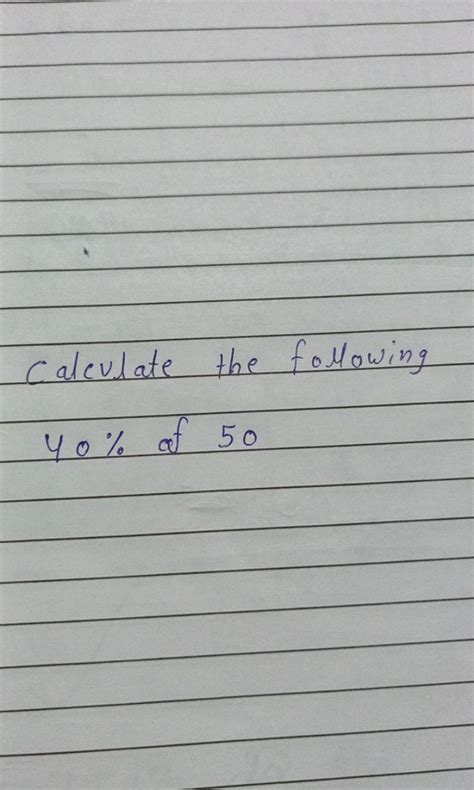 Calculate the following
40% of 50